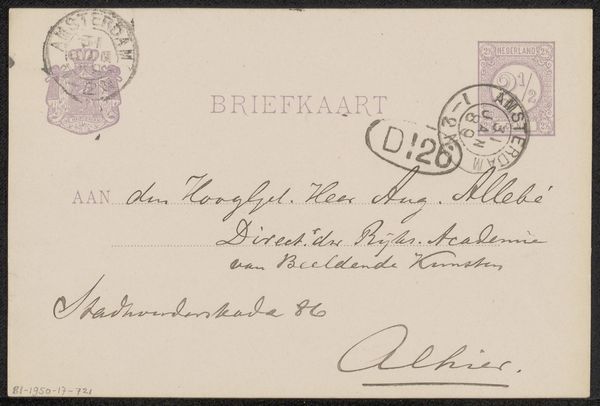 AMSTERDAM
31
NEDERLAND
2½
BRIEFKAART
AMSTERDAM
31 JAN 89
D!26
AAN den Hooggel. Heer Aug. Allebé
Direct.r der Rijks-Academie
van Beeldende Kunsten
Stadhouderskade 86
Alhier.
BI-1950-17-721